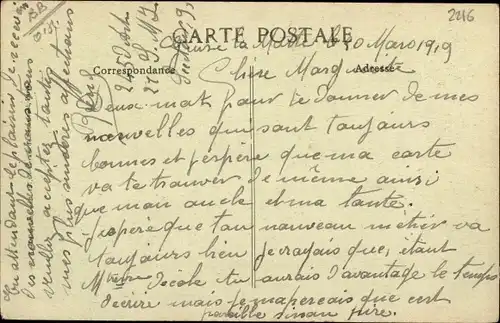 2216
CARTE POSTALE
Correspondance
Adresse
le 20 Mars 1919
Chère Marguerite
Deux mot pour te donner de mes
nouvelles qui sont toujours
bonnes et j'espère que ma carte
va te trouver de même ainsi
que mon oncle et ma tante.
J'espère que ton nouveau métier va
toujours bien je croyais que, étant
Mtresse d'école tu aurais d'avantage le temps
d'ecrire mais je m'apercois que c'est
pareille sinon pire.
En attendant le plaisir de recevoir
des nouvelles de
veuillez accepter tante
mes plus sincères affections